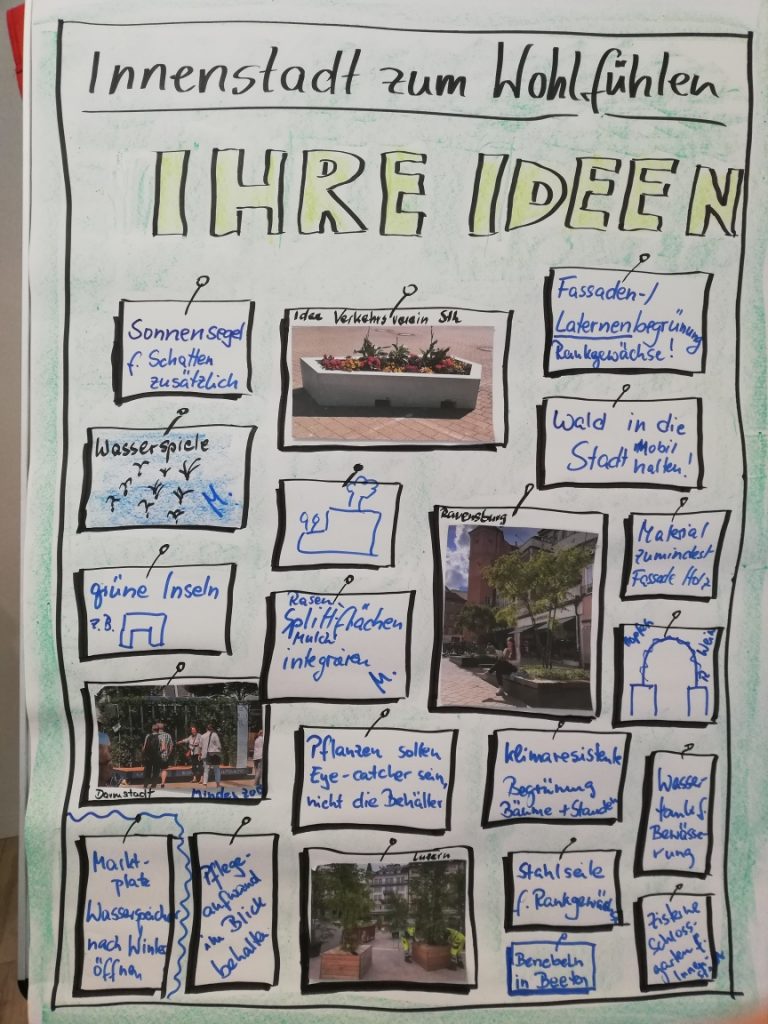 Innenstadt zum Wohlfühlen
IHRE IDEEN
Sonnensegel
f. Schatten
zusätzlich
Idee Verkehrsverein Slh
Fassaden-/
Laternenbegrünung
Rankgewächse!
Wasserspiele
M.
Wald in die
Stadt Mobil
halten!
Ravensburg
Material
zumindest
Fassade Holz
grüne Inseln
z.B.
Rasen,
Splittflächen
Mulch
integrieren
M.
Wein
Darmstadt
Pflanzen sollen
Eye-catcher sein,
nicht die Behälter
klimaresistente
Begrünung
Bäume + Stauden
Wasser
tank f.
Bewässe-
rung
Markt-
platz
Wasserspeicher
nach Winter
öffnen
Pflege-
aufwand
im Blick
behalten
Luzern
Stahlseile
f. Rankgewächse
Benebeln
in Beeten
Zisterne
Schloss-
garten f.